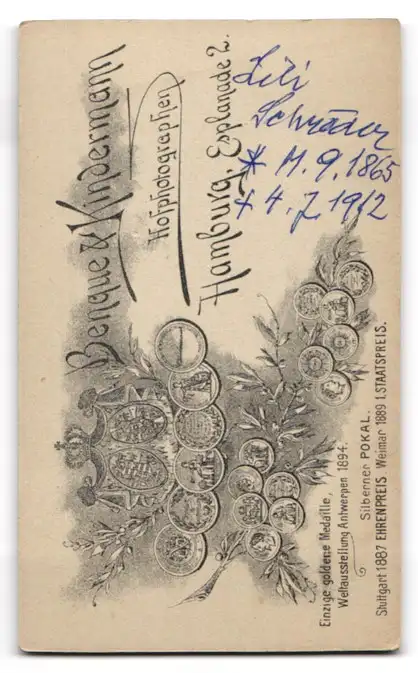 Benque & Kindermann
Hofphotographen
Hamburg, Esplanade 2.
Lili
Schröder
* 11. 9. 1865
+ 4. 7. 1912
Einzige goldene Medaille,
Weltausstellung Antwerpen 1894.
Silberner POKAL.
Stuttgart 1887 EHRENPREIS Weimar 1889 1. STAATSPREIS.